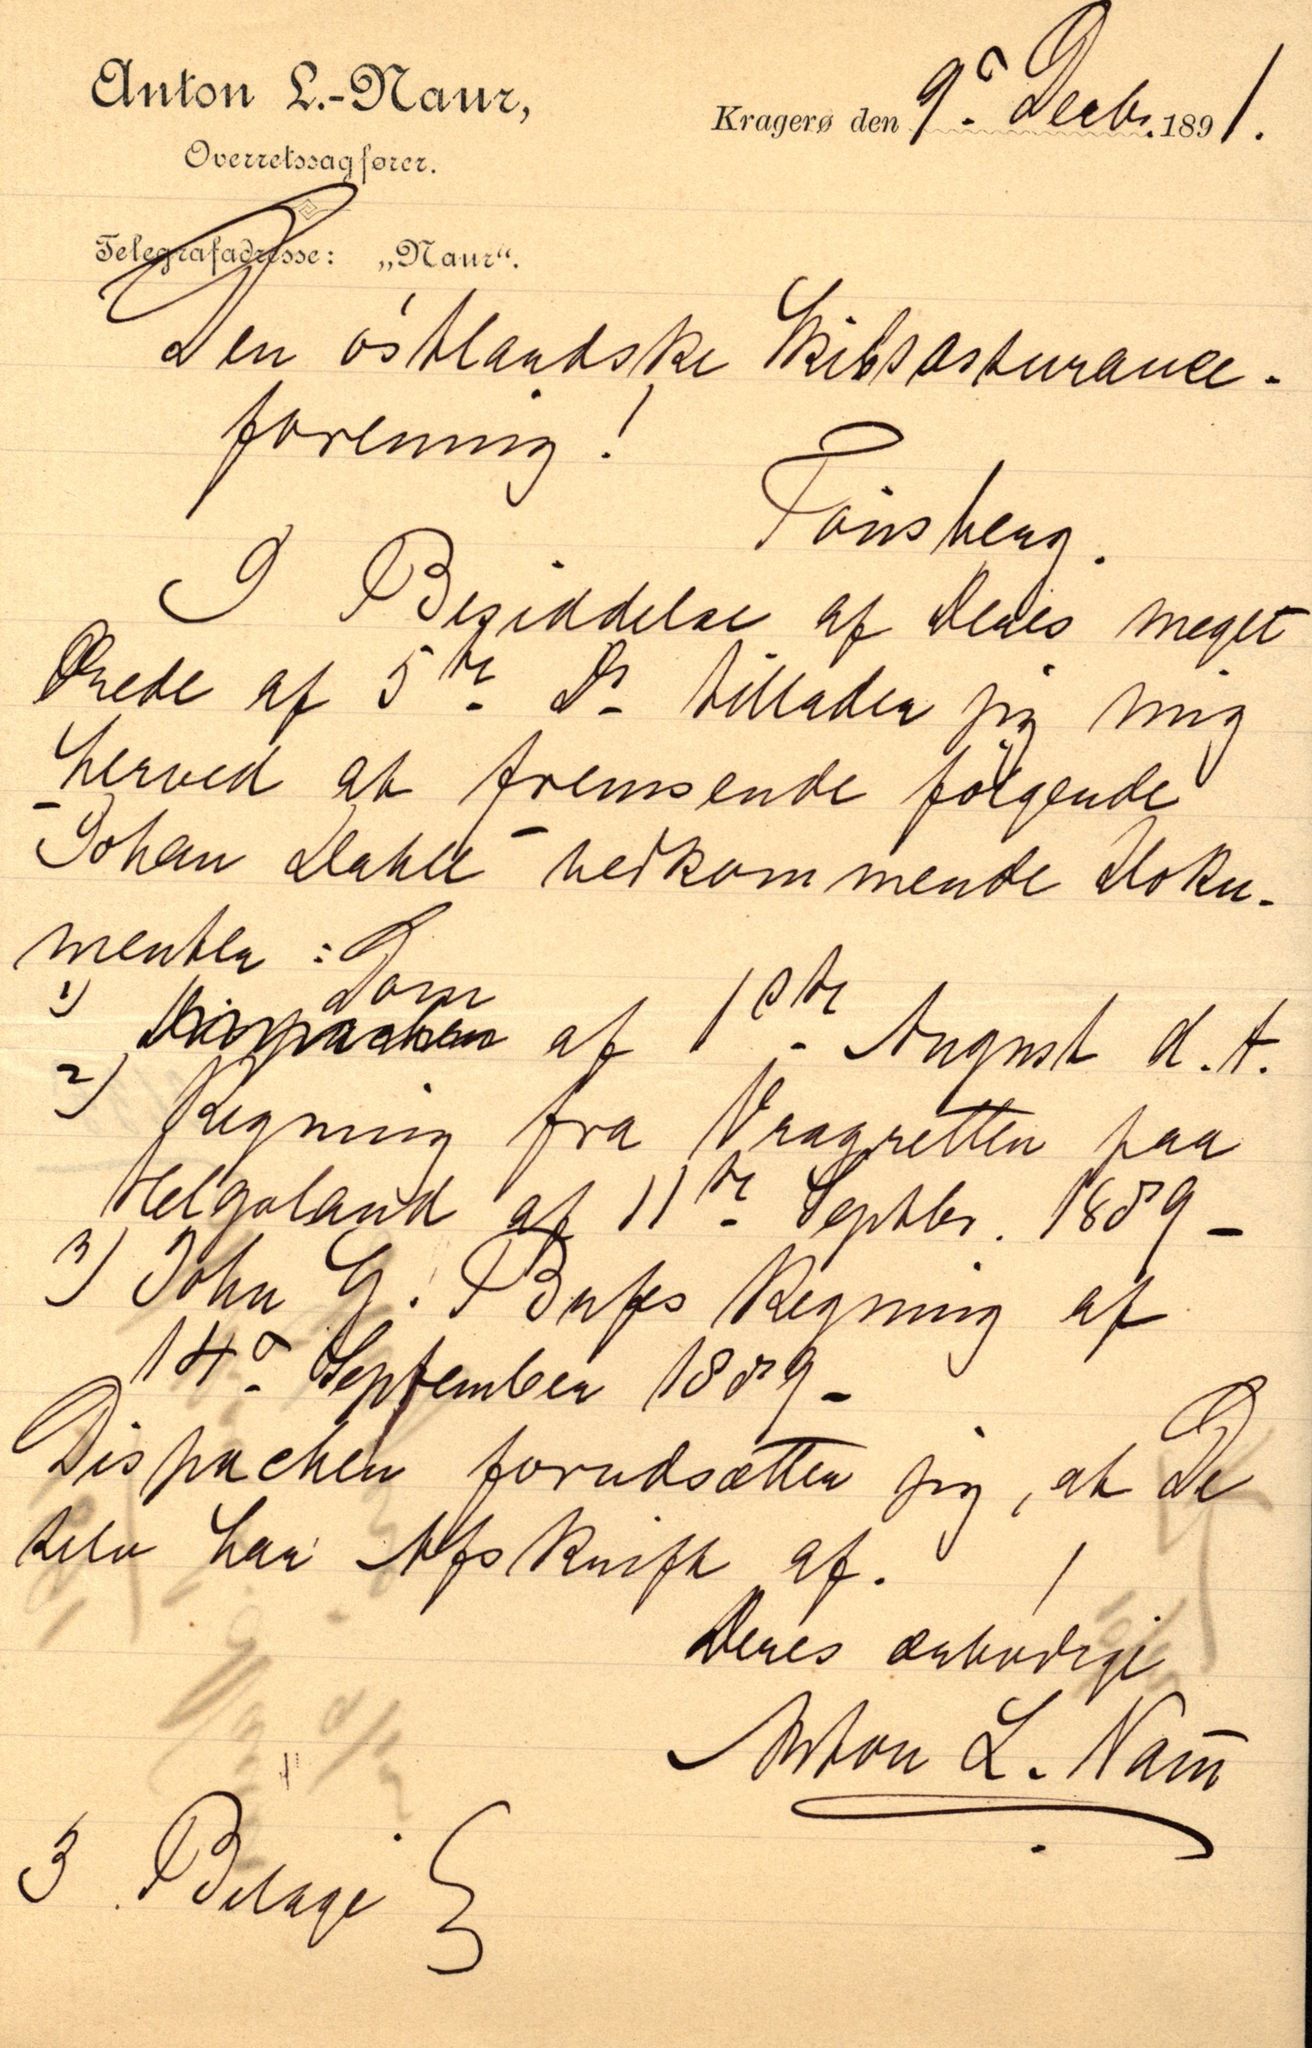 Anton L.-Naur,
Overretssagfører.
Telegrafadresse: „Naur“.
Kragerø den 9de Decbr. 1891.
Den östlandske Skibsassurance-
forening!
Tönsberg.
I Besiddelse af Deres meget
Ærede af 5te ds tillader jeg mig
herved at fremsende fölgende
"Johan Dahll" vedkommende Doku-
menter:
1) Dispachen Dom af 1ste August d. A.
2) Regning fra Vragretten paa
Helgoland af 11te Septbr. 1889 -
3) John G. Regning af
14de September 1889 -
Dispachen forudsætter jeg, at De
selv har Afskrift af.
Deres ærbödige
Anton L. Naur
3 Bilage